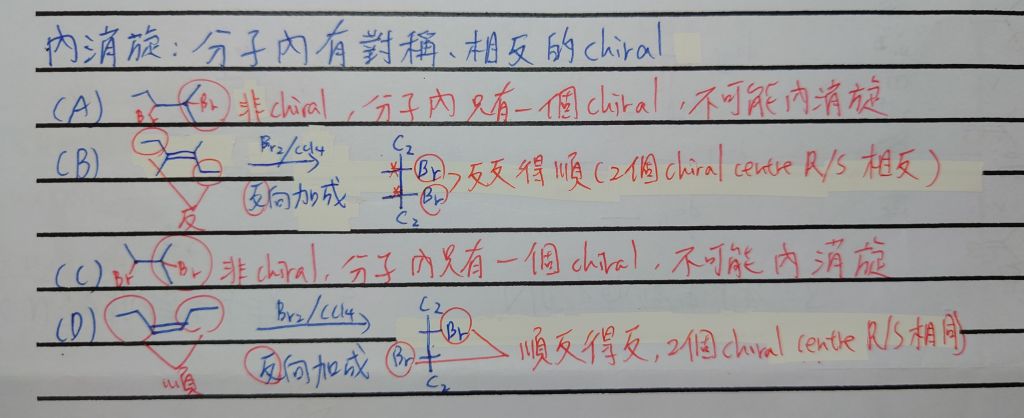 內消旋：分子內有對稱、相反的chiral
(A) Br Br 非chiral，分子內只有一個chiral，不可能內消旋
(B) 反 Br2/CCl4 反向加成 C2 Br Br C2 反反得順(2個chiral centre R/S 相反)
(C) Br Br 非chiral，分子內只有一個chiral，不可能內消旋
(D) 順 Br2/CCl4 反向加成 C2 Br Br C2 順反得反，2個chiral centre R/S相同